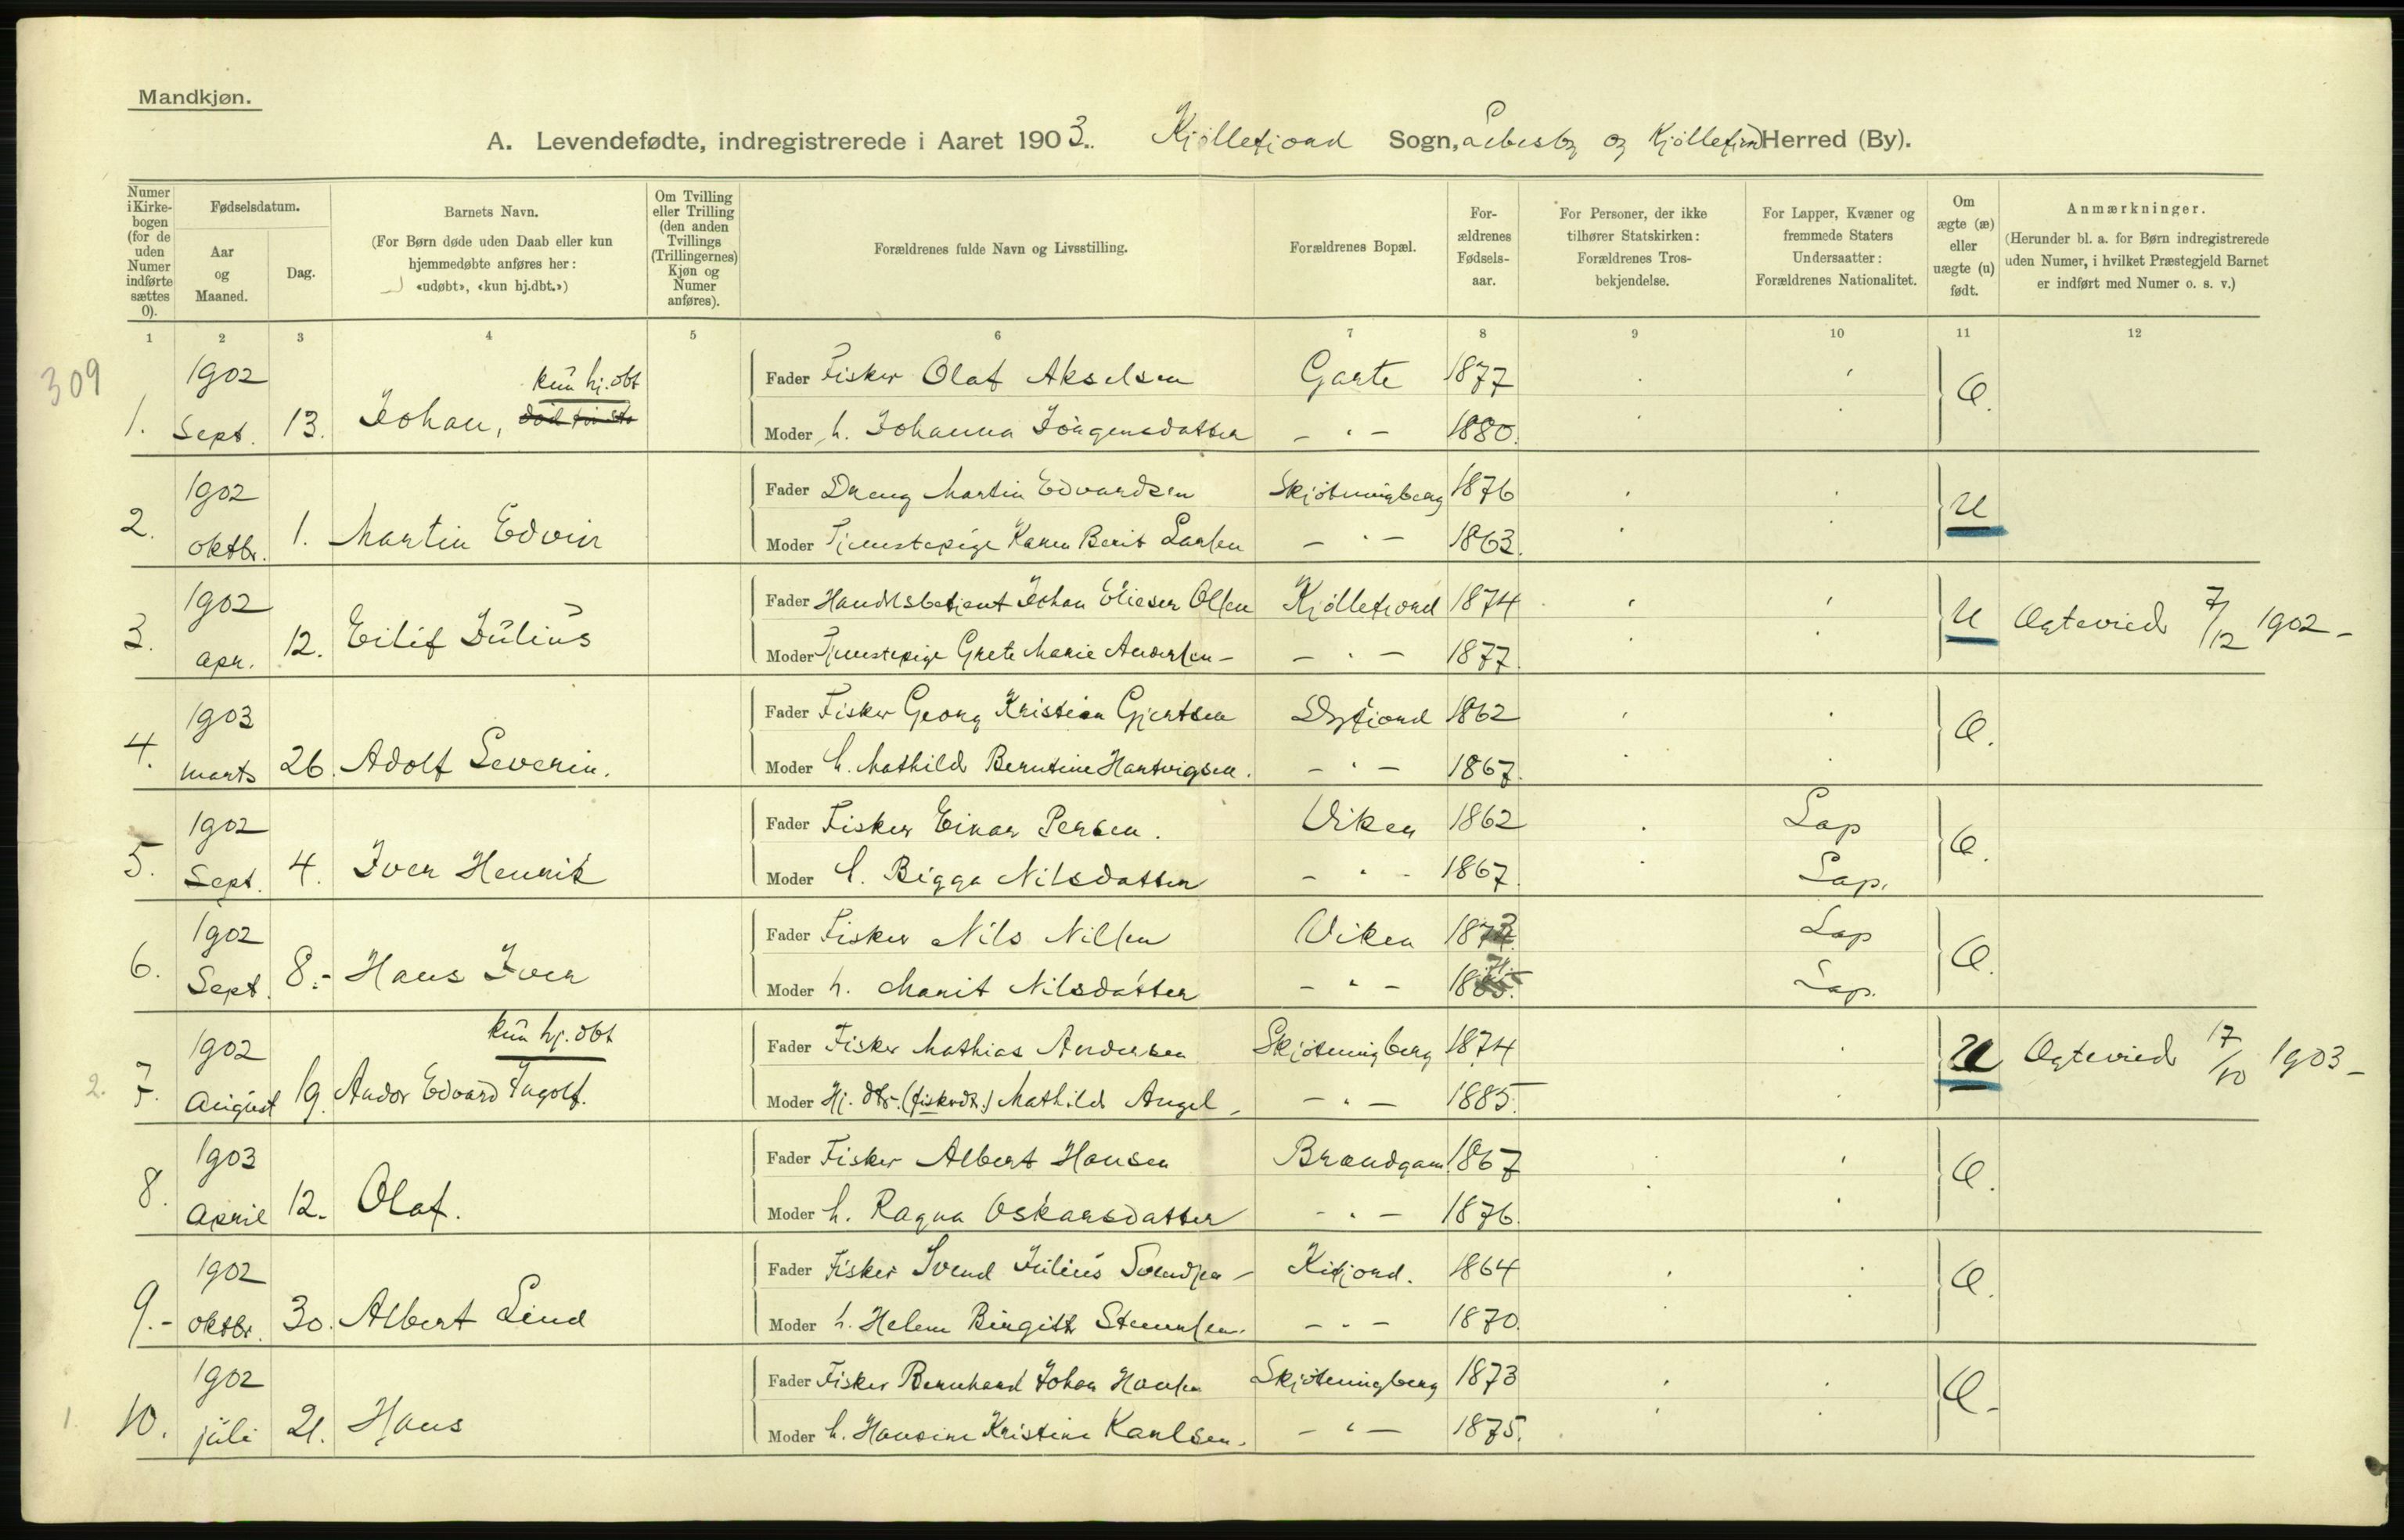 Mandkjøn.
A. Levendefødte, indregistrerede i Aaret 1903. Kjøllefjord Sogn, Lebesby og Kjøllefjord Herred (By).
Numer i Kirkebogen (for de uden Numer indførte sættes 0).
Fødselsdatum.
Aar og Maaned.
Dag.
Barnets Navn.
(For Børn døde uden Daab eller kun hjemmedøbte anføres her: «udøbt», «kun hj.dbt.»)
Om Tvilling eller Trilling (den anden Tvillings (Trillingernes) Kjøn og Numer anføres).
Forældrenes fulde Navn og Livsstilling.
Forældrenes Bopæl.
Forældrenes Fødselsaar.
For Personer, der ikke tilhører Statskirken: Forældrenes Trosbekjendelse.
For Lapper, Kvæner og fremmede Staters Undersaatter: Forældrenes Nationalitet.
Om ægte (æ) eller uægte (u) født.
Anmærkninger.
(Herunder bl. a. for Børn indregistrerede uden Numer, i hvilket Præstegjeld Barnet er indført med Numer o. s. v.)
1 2 3 4 5 6 7 8 9 10 11 12
309
1902 kun hj. dbt Fader Fisker Olaf Akselsen Garte 1877 Æ.
1. Sept. 13. Johan, Moder h. Johanna Jørgensdatter – " – 1880.
1902 Fader Dreng Martin Edvardsen Skjötningberg 1876 U
2. oktbr. 1. Martin Edvin Moder Tjenestepige Karen Berit Larsen – " – 1863.
1902 Fader Handelsbetjent Johan Elieser Olsen Kjöllefjord 1874 U Ægteviet 7/12 1902 –
3. apr. 12. Eilif Julius Moder Tjenestepige Grete Marie Andersen – – " – 1877.
1903 Fader Fisker Georg Kristian Gjertsen Dyfjord 1862 Æ.
4. marts 26. Adolf Severin. Moder h. Mathild Berntine Hartvigsen. – " – 1867.
1902 Fader Fisker Einar Persen. Viken 1862 Lap Æ.
5. Sept. 4. Iver Henrik Moder h. Bigga Nilsdatter – " – 1867. Lap.
1902 Fader Fisker Nils Nilsen Viken Lap Æ.
6. Sept. 8.- Hans Iver Moder h. Marit Nilsdatter – " – Lap.
1902 kun hj. dbt Fader Fisker Mathias Andersen Skjötningberg 1874 U Ægteviet 17/10 1903 –
2. 7. August 19. Andor Edvard Ingolf. Moder Hj. dtr. (fiskerdt.) Mathilde Angel – – " – 1885.
1903 Fader Fisker Albert Hansen Brandgam. 1867 Æ.
8. April 12. Olaf. Moder h. Ragna Oskarsdatter – " – 1876.
1902 Fader Fisker Svend Julius Svendsen – Kifjord. 1864 Æ.
9.- oktbr. 30. Albert Lind Moder h. Helene Birgitte – " – 1870.
1902 Fader Fisker Bernhard Johan Hansen Skjötningberg 1873 Æ.-
1. 10. juli 21. Hans Moder h. Hansine Kristine Karlsen. – " – 1875.